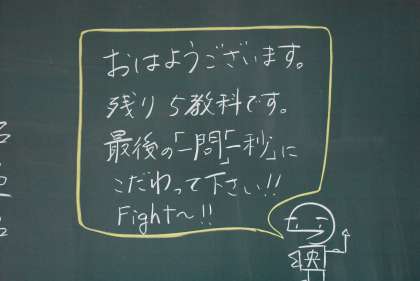 おはようございます。
残り5教科です。
最後の「一問」「一秒」に
こだわって下さい!!
Fight〜!!
央